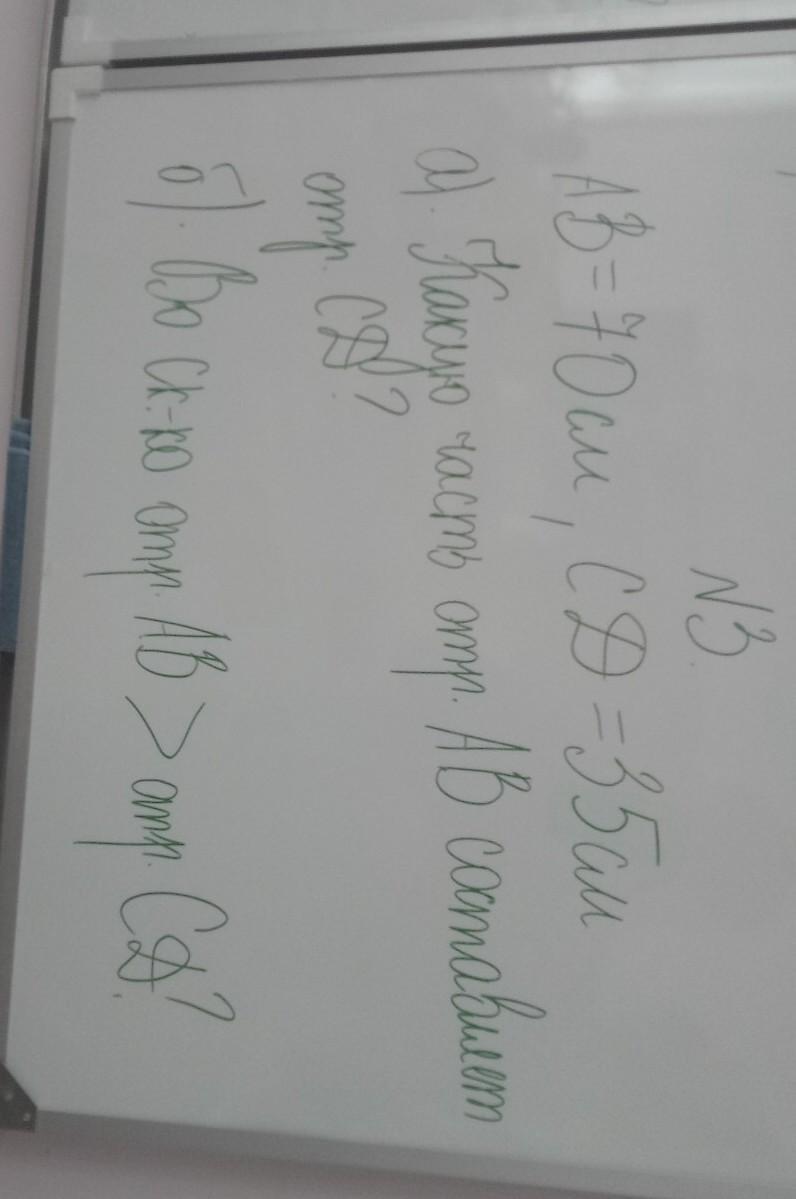 N3.
AB = 70 см, СД = 35 см
а). Какую часть отр. AB составляет
отр. СД?
б). Во ск-ко отр. AB > отр. СД?